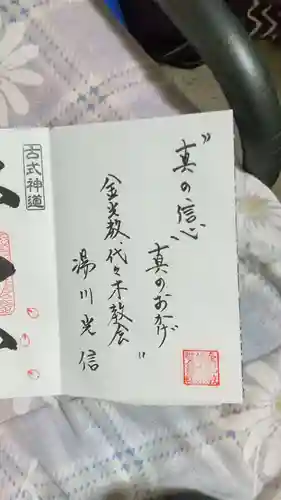 "真の信心
真のおかげ"
金光教、代々木教会
湯川光信
古式神道